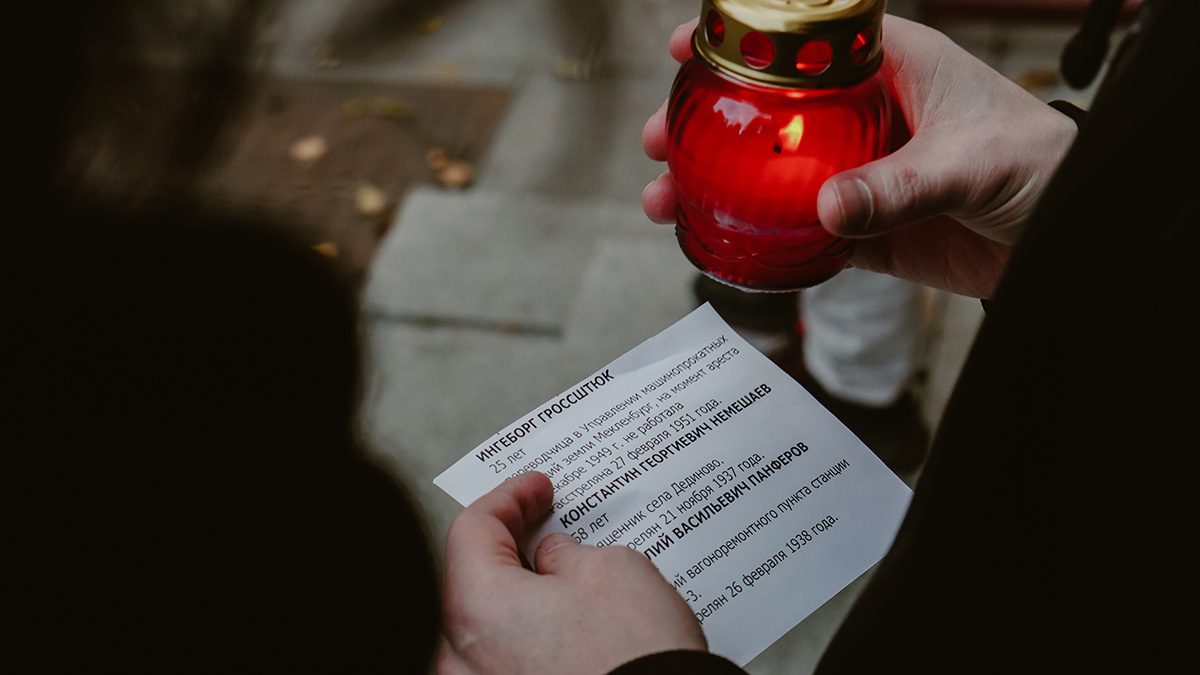 ИНГЕБОРГ ГРОССШТЮК
25 лет
переводчица в Управлении машинопрокатных
земли Мекленбург, на момент ареста
декабре 1949 г. не работала
Расстреляна 27 февраля 1951 года.
КОНСТАНТИН ГЕОРГИЕВИЧ НЕМЕШАЕВ
58 лет
священник села Дединово.
21 ноября 1937 года.
ВАСИЛЬЕВИЧ ПАНФЕРОВ
вагоноремонтного пункта станции
-3.
26 февраля 1938 года.